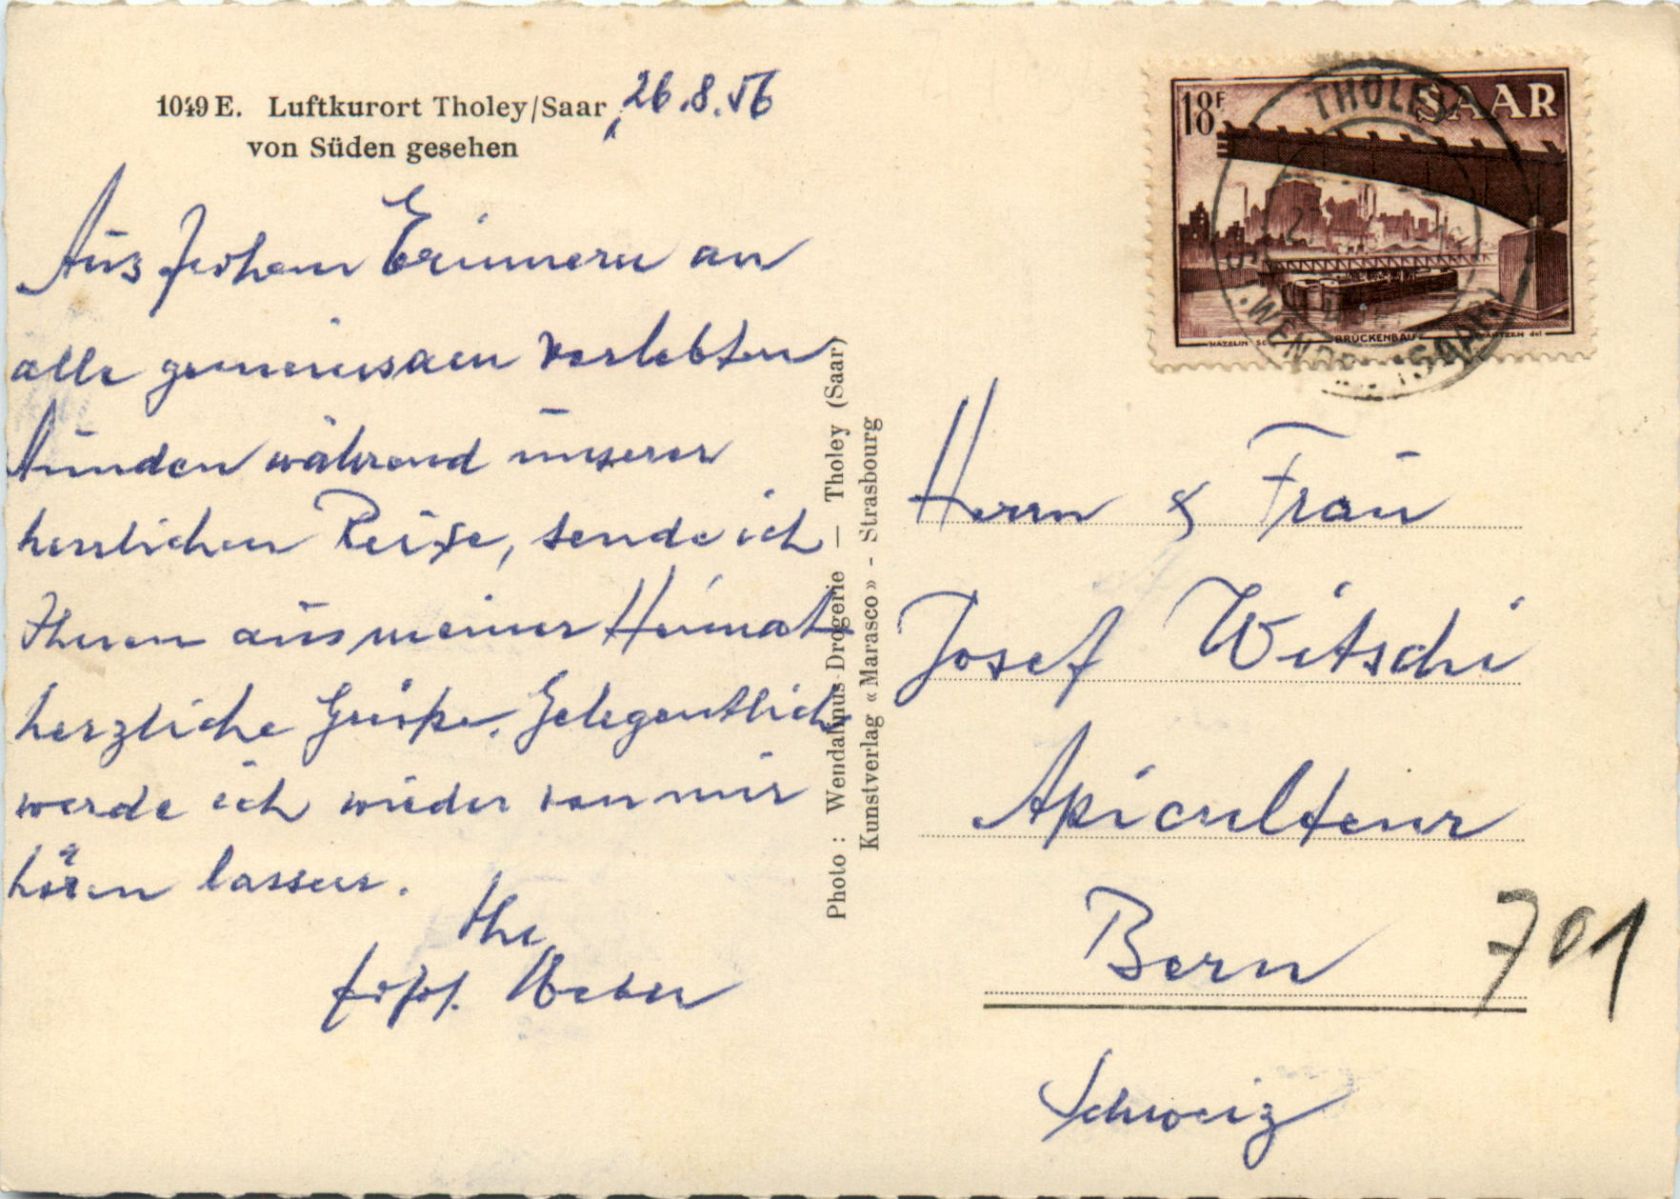 1049 E. Luftkurort Tholey/Saar, 26.8.56
von Süden gesehen
Aus frohem Erinnern an
alle gemeinsam verlebten
Stunden während unserer
herrlichen Reise, sende ich
Ihnen aus meiner Heimat
herzliche Grüße. Gelegentlich
werde ich wieder von mir
hören lassen.
Ihr
Weber
Photo : Wendalinus-Drogerie — Tholey (Saar)
Kunstverlag « Marasco » - Strasbourg
18F SAAR
BRÜCKENBAU
THOLEY
ST. WENDEL (SAAR)
Herrn & Frau
Josef Witschi
Apiculteur
Bern
701
Schweiz